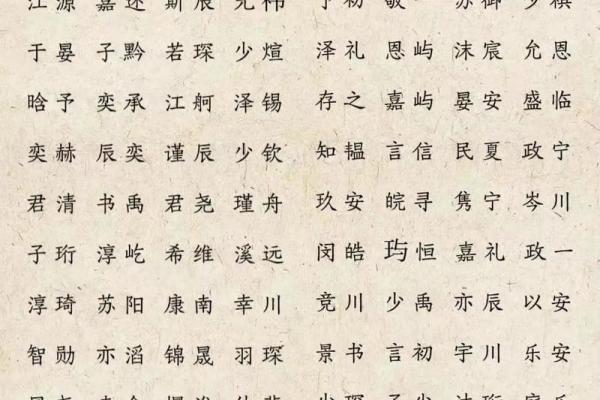 江源 嘉述 斯辰 允 予初 敬一 苏御 夕祺
于晏 子黔 若琛 少煊 泽礼 恩屿 沫宸 允恩
晗予 奕承 江舸 泽锡 存之 嘉屿 晏安 盛临
奕赫 辰奕 谨辰 少钦 知韫 言信 民夏 政宁
君清 书禹 君尧 瑾舟 玖安 皖寻 隽宁 岑川
子珩 淳屹 希维 溪远 闵皓 玙恒 嘉礼 政一
淳琦 苏阳 康南 幸川 竞川 少禹 亦辰 以安
智勋 亦滔 锦晟 羽琛 景书 言初 宇川 乐安